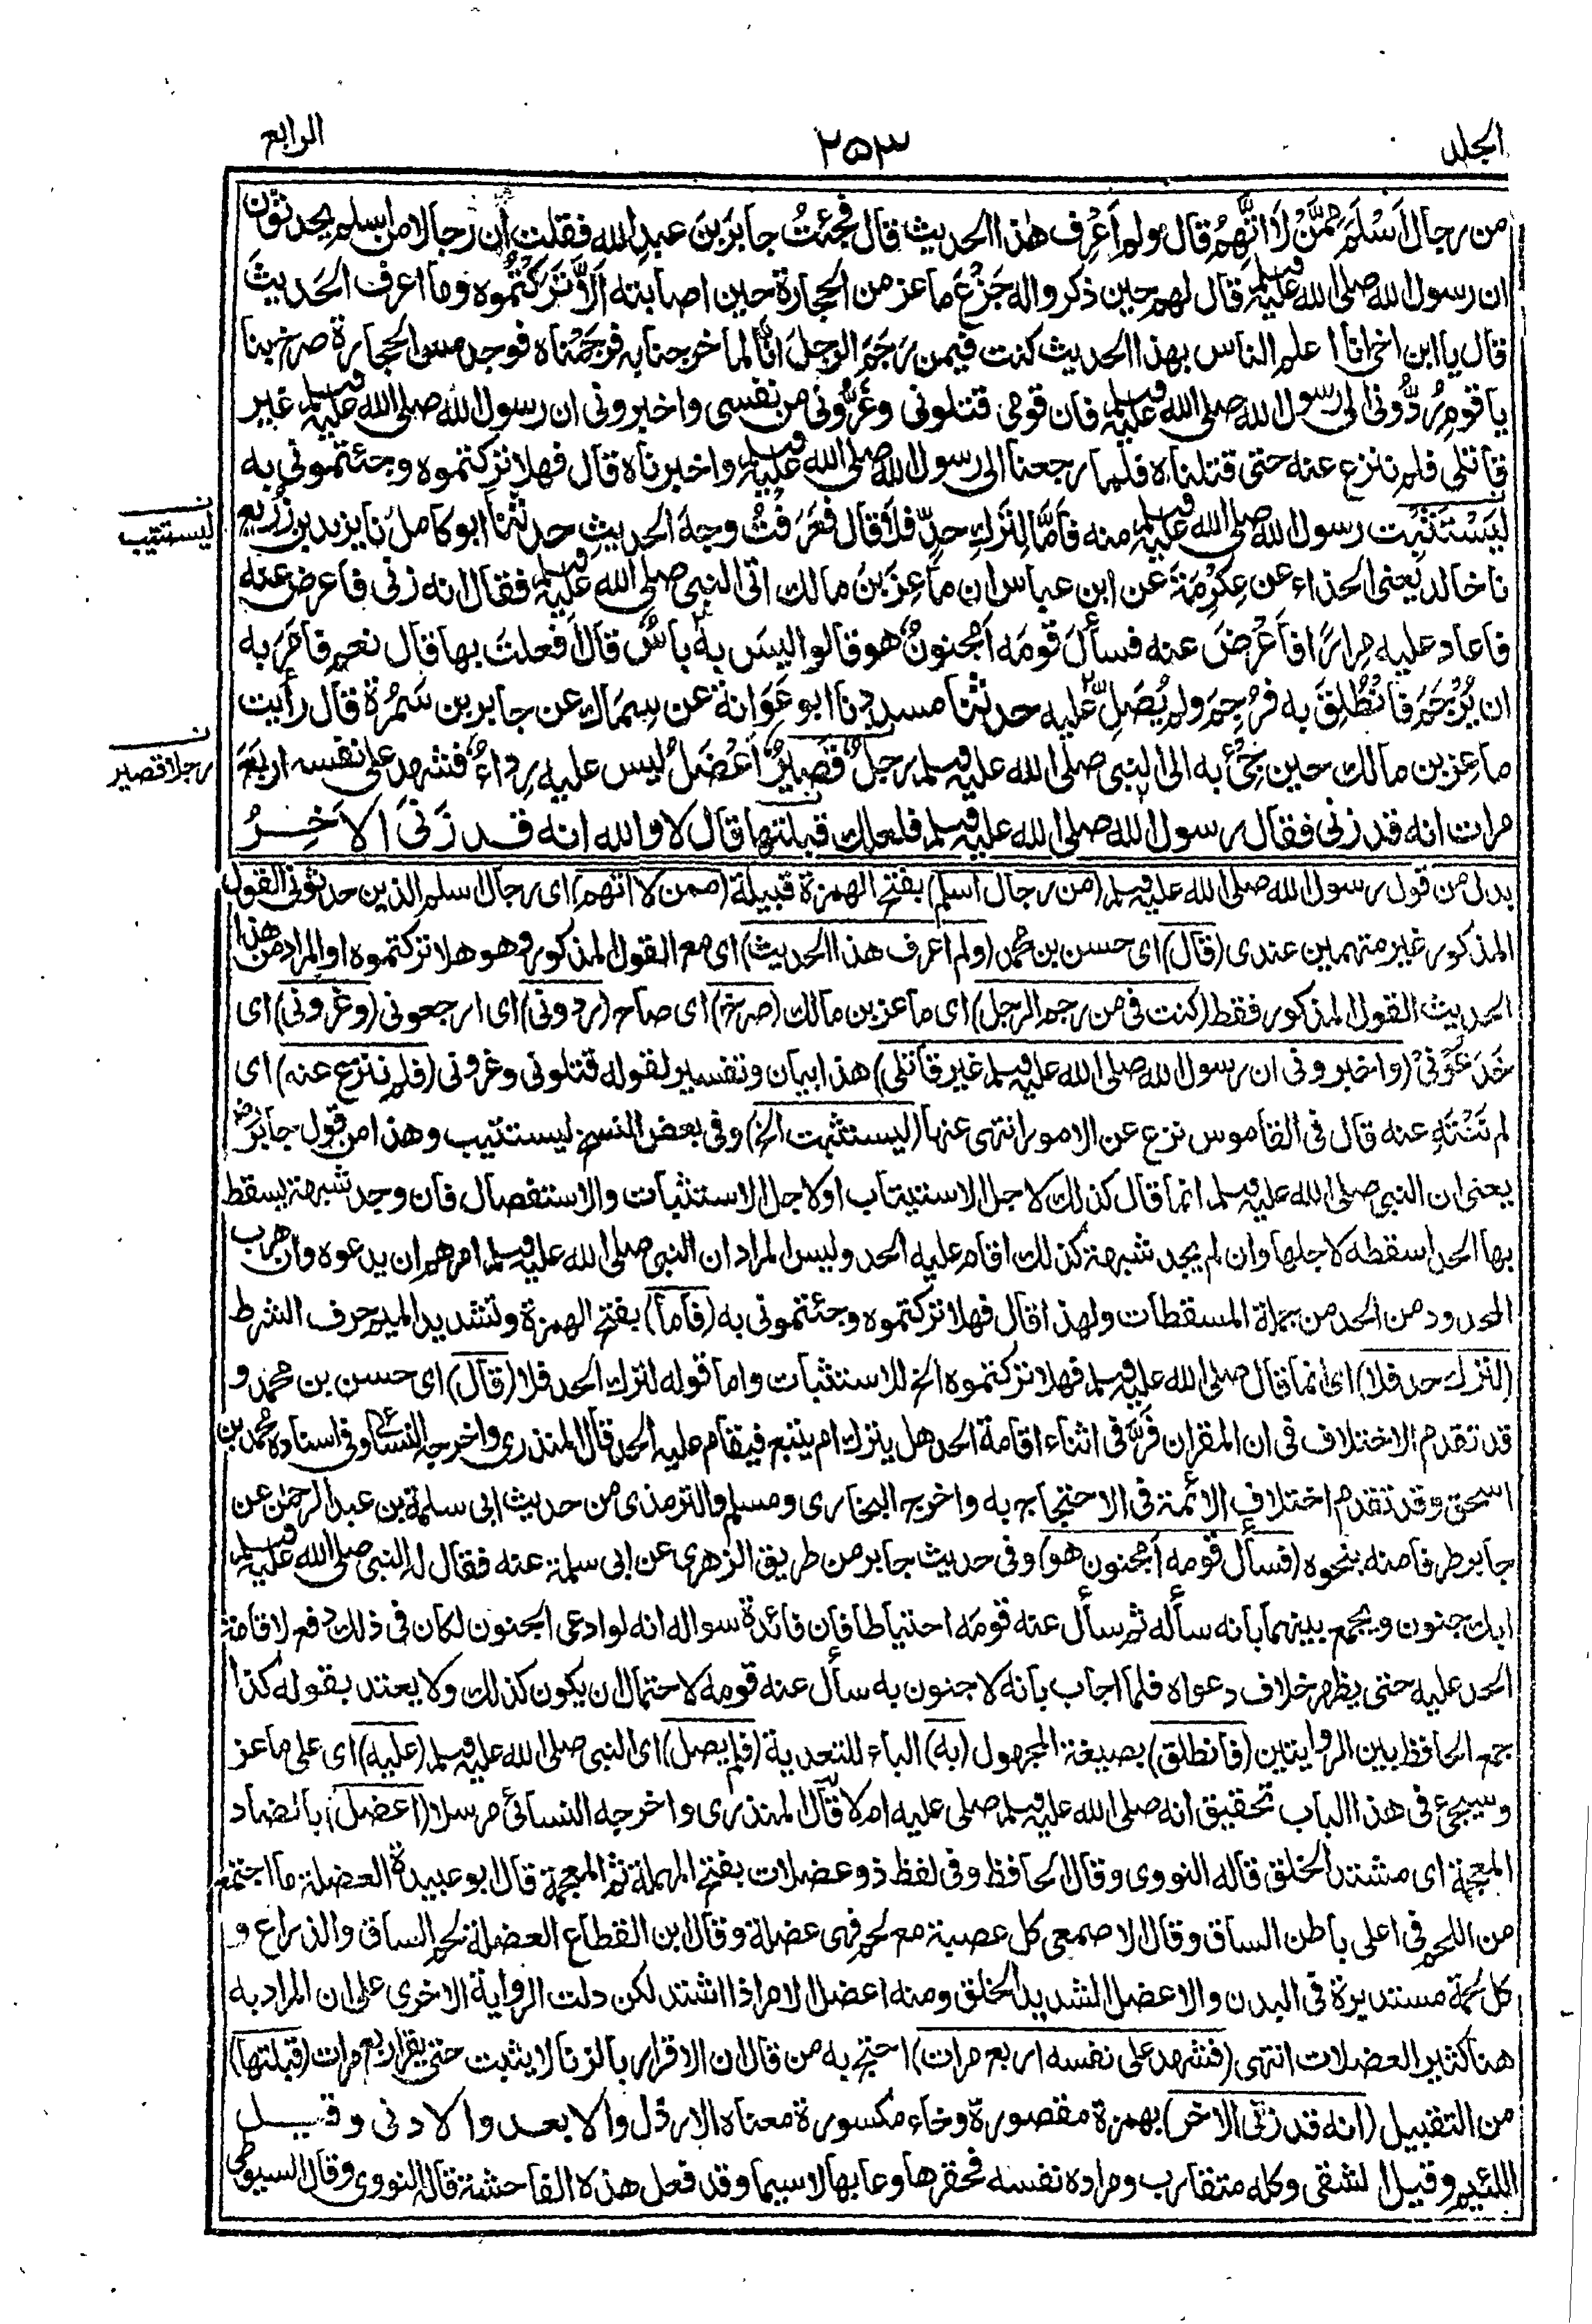 المجلد
٢٥٣
الرابع
من رجال اَسْلَمَ مِمَّنْ لَا اَتَّهِمُ قال ولم اَعْرِف هٰذا الحديث قال فجئتُ جابرَ بنَ عبدِالله فقلت ان رجالا من اسلم يحدثون
ان رسول الله صلى الله عليه وسلم قال لهم حين ذكروا له جَزْعَ ماعز من الحجارة حين اصابته اَلَّا تَرَكْتُمُوه وما اعرف الحَديثَ
قال يا ابن اخى انا اعلم الناس بهذا الحديث كنت فيمن رَجَمَ الرجلَ انَّا لما خرجنا به فرَجَمْناه فوجد مس الحجارة صرخ بنا
يا قومِ رُدُّونى الى رسول الله صلى الله عليه وسلم فان قومى قتلونى وغَرُّونى من نفسى واخبرونى ان رسول الله صلى الله عليه وسلم غير
قاتلى فلم ننزع عنه حتى قتلناه فلما رجعنا الى رسول الله صلى الله عليه وسلم واخبرناه قال فهلا تركتموه وجئتمونى به
لِيَسْتَثْبِت رسول الله صلى الله عليه وسلم منه فاَمَّا لِتَرْكِ حدٍّ فلا قال فعَرَفْتُ وجهَ الحديثِ حدثنا ابو كامل نا يزيد بن زُرَيع
نا خالد يعنى الحذاء عن عِكْرِمَةَ عن ابن عباس ان ماعِزَ بنَ مالك اتى النبى صلى الله عليه وسلم فقال انه زنى فاعرض عنه
فاعاد عليه مِرارًا فاَعْرَضَ عنه فسأَلَ قومَه اَمجنونٌ هو قالوا ليسَ به باسٌ قال اَفعلتَ بها قال نعم فاَمَرَ به
ان يُرْجَمَ فانْطُلِقَ به فرُجِمَ ولم يُصَلِّ عليه حدثنا مسدد نا ابو عَوَانة عن سِمَاك عن جابر بن سَمُرة قال رأيت
ماعِزَ بن مالك حين جِئَ به الى النبى صلى الله عليه وسلم رجلٌ قَصِيرٌ اَعْضَلُ ليس عليه رِداءٌ فشهد على نفسه اربعَ
مرات انه قد زنى فقال رسول الله صلى الله عليه وسلم فلعلك قبلتها قال لا والله انه قد زَنىَ الاَخِرُ
ليستتيب
رجلا قصيرا
بدل من قول رسول الله صلى الله عليه وسلم (من رجال اسلم) بفتح الهمزة قبيلة (ممن لا اتهم) اى رجال اسلم الذين حدثونى القول
المذكور غير متهمين عندى (قال) اى حسن بن محمد (ولم اعرف هذا الحديث) اى مع القول المذكور وهو هلا تركتموه او المراد من هذا
الحديث القول المذكور فقط (كنت فى من رجم الرجل) اى ماعز بن مالك (صرخ) اى صاح (ردونى) اى ارجعونى (وغرونى) اى
خَدَعُونِىْ (واخبرونى ان رسول الله صلى الله عليه وسلم غير قاتلى) هذا بيان وتفسير لقوله قتلونى وغرونى (فلم ننزع عنه) اى
لم نَنْتَهِ عنه قال فى القاموس نزع عن الامور انتهى عنها (ليستثبت الخ) وفى بعض النسخ ليستتيب وهذا من قول جابر رض
يعنى ان النبى صلى الله عليه وسلم انما قال كذلك لاجل الاستتياب او لاجل الاستثبات والاستفصال فان وجد شبهة يسقط
بها الحد اسقطه لاجلها وان لم يجد شبهة كذلك اقام عليه الحد وليس المراد ان النبى صلى الله عليه وسلم امرهم ان يدعوه وان هرب
المحدود من الحد من جملة المسقطات ولهذا قال فهلا تركتموه وجئتمونى به (فاما) بفتح الهمزة وتشديد الميم حرف الشرط
(لترك حد فلا) اى انما قال صلى الله عليه وسلم فهلا تركتموه الخ للاستثبات واما قوله لترك الحد فلا (قال) اى حسن بن محمد و
قد تقدم الاختلاف فى ان المقر ان فَرَّ فى اثناء اقامة الحد هل يترك ام يتبع فيقام عليه الحد قال المنذرى واخرجه النسائى وفى اسناده محمد بن
اسحق وقد تقدم اختلاف الائمة فى الاحتجاج به واخرجه البخارى ومسلم والترمذى من حديث ابى سلمة بن عبد الرحمن عن
جابر طرفا منه بنحوه (فسأل قومه أمجنون هو) وفى حديث جابر من طريق الزهرى عن ابى سلمة عنه فقال له النبى صلى الله عليه وسلم
ابك جنون ويجمع بينهما بانه سأله ثم سأل عنه قومه احتياطا فان فائدة سواله انه لو ادعى الجنون لكان فى ذلك دفع لاقامة
الحد عليه حتى يظهر خلاف دعواه فلما اجاب بانه لا جنون به سأل عنه قومه لاحتمال ان يكون كذلك ولا يعتد بقوله كذا
جمع الحافظ بين الروايتين (فانطلق) بصيغة المجهول (به) الباء للتعدية (فلم يصل) اى النبى صلى الله عليه وسلم (عليه) اى على ماعز
وسيجئ فى هذا الباب تحقيق انه صلى الله عليه وسلم صلى عليه ام لا قال المنذرى واخرجه النسائى مرسلا (اعضل) بالضاد
المعجمة اى مشتد الخلق قاله النووى وقال الحافظ وفى لفظ ذو عضلات بفتح المهملة ثم المعجمة قال ابو عبيدة العضلة ما اجتمع
من اللحم فى اعلى باطن الساق وقال الاصمعى كل عصبة مع لحم فهى عضلة وقال ابن القطاع العضلة لحم الساق والذراع و
كل لحمة مستديرة فى البدن والاعضل الشديد الخلق ومنه اعضل الامر اذا اشتد لكن دلت الرواية الاخرى على ان المراد به
هنا كثير العضلات انتهى (فشهد على نفسه اربع مرات) احتج به من قال ان الاقرار بالزنا لا يثبت حتى يقر اربع مرات (قبلتها)
من التقبيل (انه قد زنى الاخر) بهمزة مقصورة وخاء مكسورة معناه الارذل والابعد والادنى وقيل
اللئيم وقيل الشقى وكله متقارب ومراده نفسه فحقرها وعابها لاسيما وقد فعل هذه الفاحشة قاله النووى وقال السيوطى